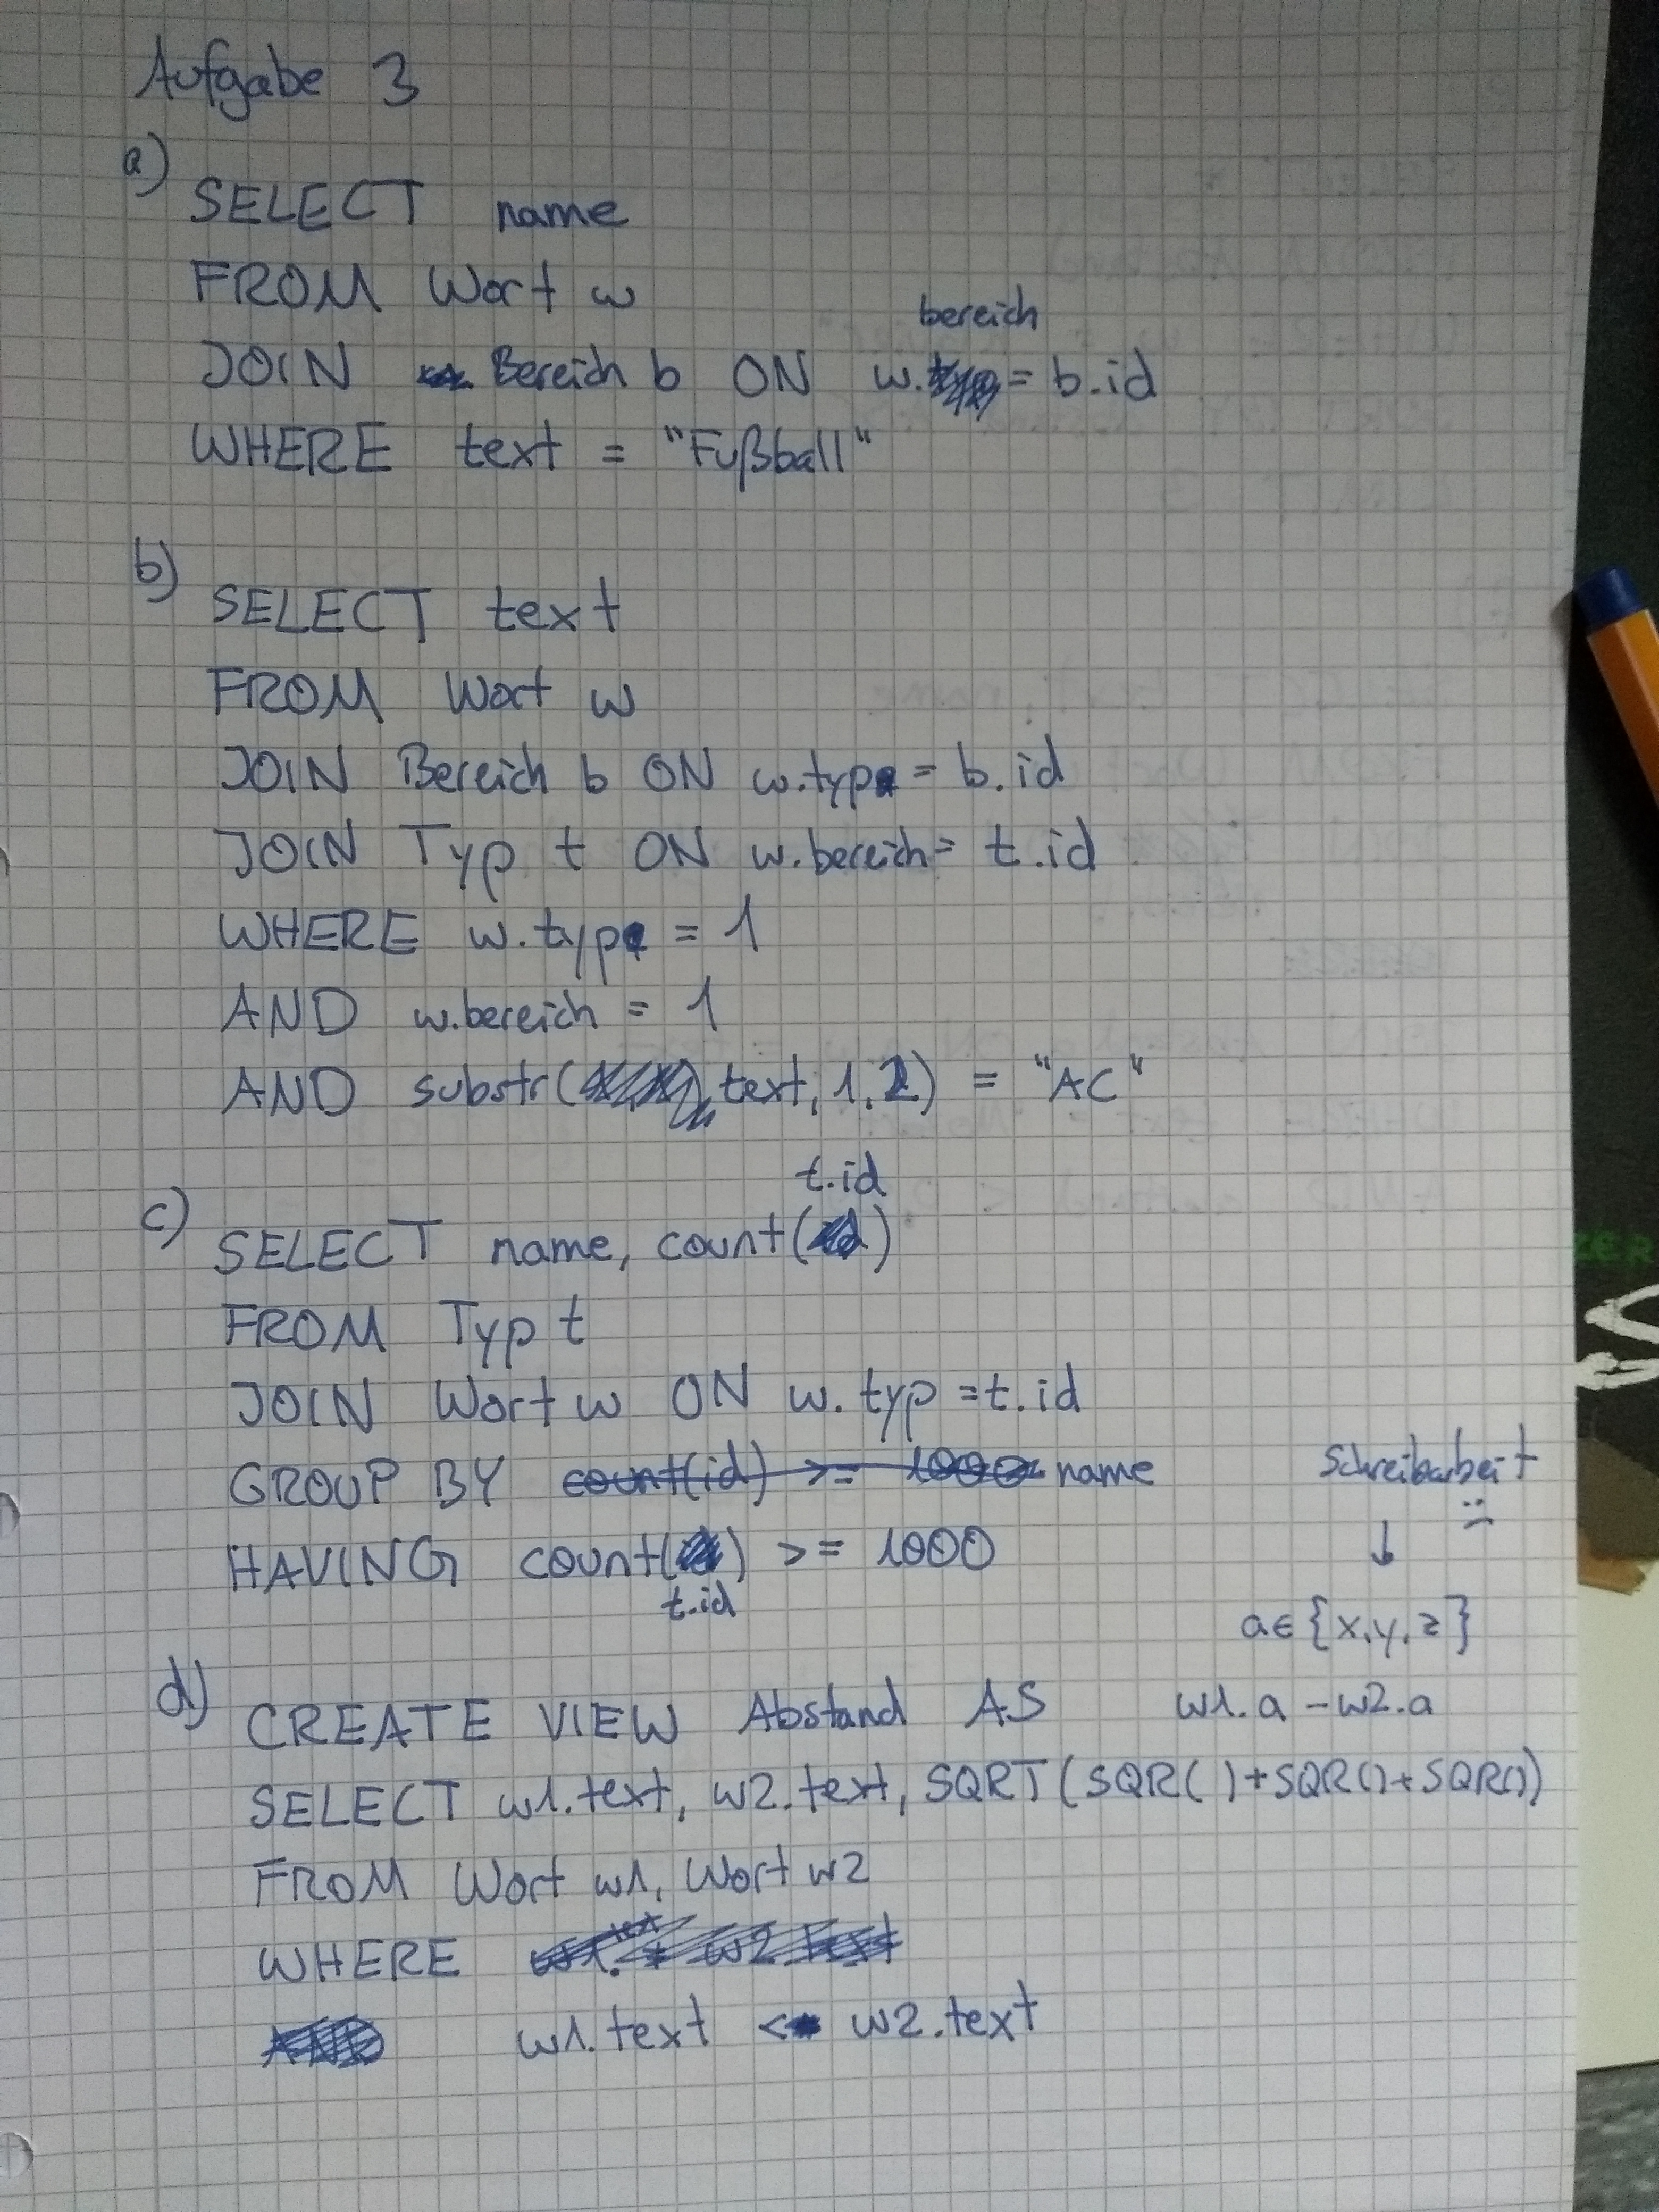 Aufgabe 3
a)
SELECT name
FROM Wort w
bereich
JOIN Bereich b ON w. = b.id
WHERE text = "Fußball"
b)
SELECT text
FROM Wort w
JOIN Bereich b ON w.typ = b.id
JOIN Typ t ON w.bereich = t.id
WHERE w.typ = 1
AND w.bereich = 1
AND substr(text, 1, 2) = "AC"
t.id
c)
SELECT name, count()
FROM Typ t
JOIN Wort w ON w.typ = t.id
GROUP BY count(id) >= 1000 name
HAVING count() >= 1000
t.id
Schreibarbeit
:(
↓
a∈{x,y,z}
d)
CREATE VIEW Abstand AS w1.a - w2.a
SELECT w1.text, w2.text, SQRT(SQR()+SQR()+SQR())
FROM Wort w1, Wort w2
WHERE
w1.text < w2.text
ZER